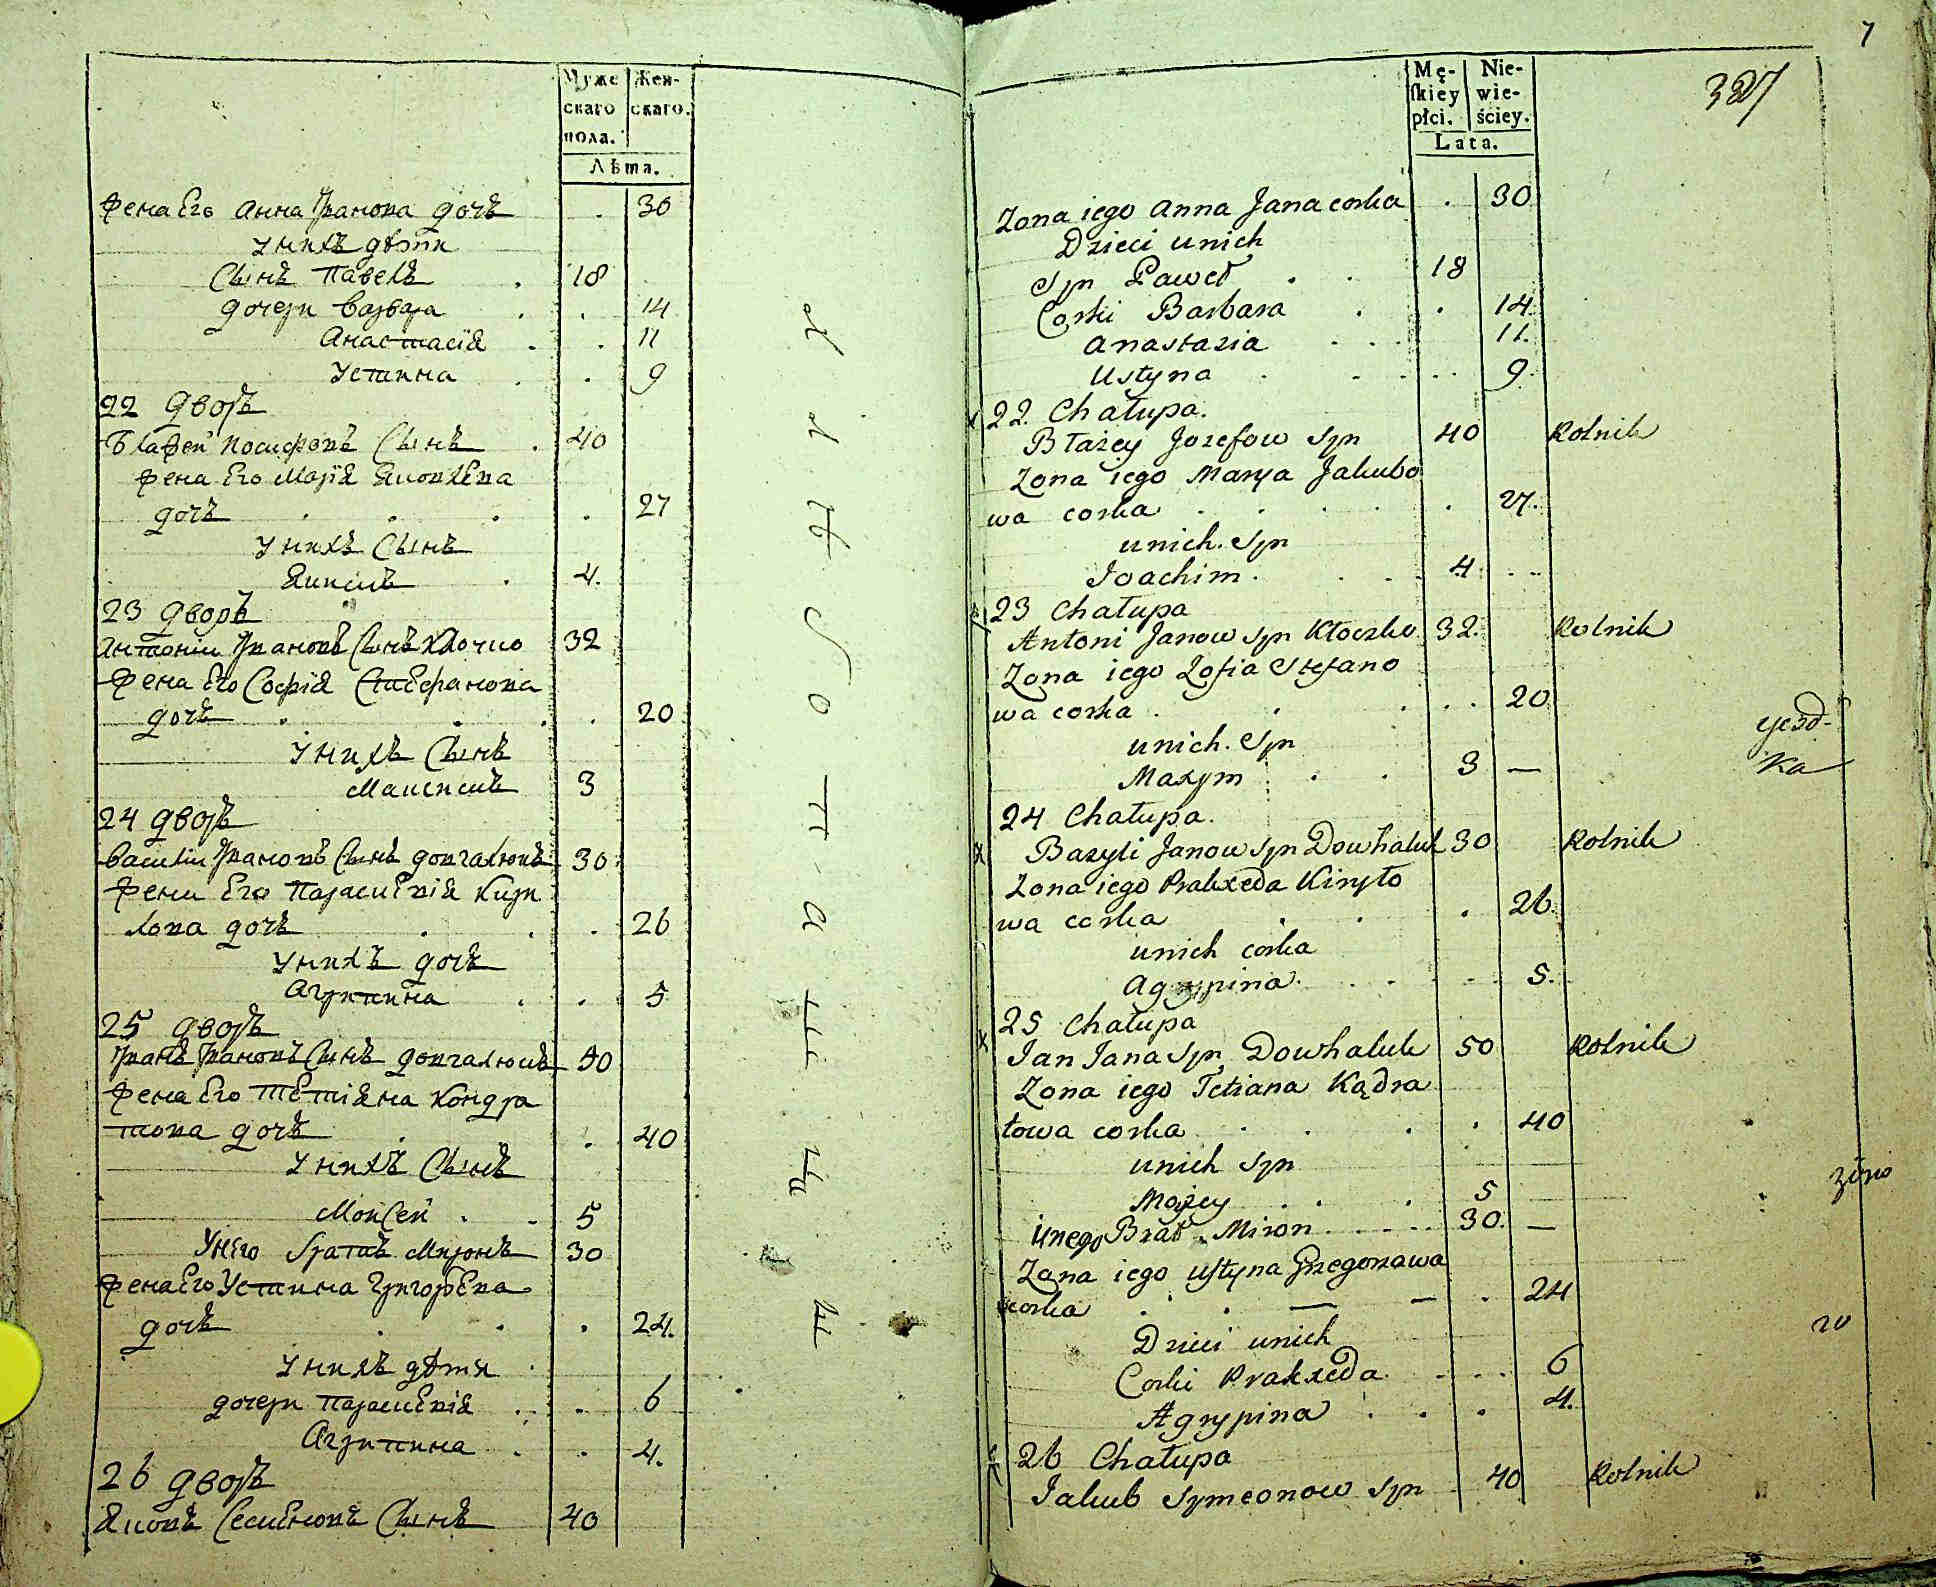 Муже
скаго
пола.
Жен-
скаго.
Лѣта.
Жена Его Анна Иванова дочь . 30
У нихъ дѣти
Сынъ Павелъ . 18
дочери Варвара . . 14
Анастасія . . 11
Устина . . 9
22 Дворъ
Блажей Иосифовъ Сынъ . 40
Жена Его Марія Яковлева
дочь . . . . 27
У нихъ Сынъ
Якимъ . 4.
23 Дворъ
Антоній Ивановъ Сынъ Клочко 32
Жена Его Софія Стефанова
дочь . . . . 20
У нихъ Сынъ
Максимъ 3
24 Дворъ
Василій Ивановъ Сынъ Довгалюкъ 30
Жена Его Параскевія Кири
лова дочь . . . 26
У нихъ дочь
Агрипина . . 5
25 Дворъ
Иванъ Ивановъ Сынъ Довгалюкъ 50
Жена Его Тетіяна Кондра
това дочь . . 40
У нихъ Сынъ
Мойсей . . 5
У Него Братъ Миронъ 30
Жена Его Устина Григорьева
дочь . . . 24.
У нихъ дѣти
дочери Параскевія . . 6
Агрипина . . 4.
26 Дворъ
Яковъ Семеновъ Сынъ 40
7
Mę-
ſkiey
płci.
Nie-
wie-
ściey.
Lata.
Zona iego Anna Jana corka . 30
Dzieci unich
Syn Paweł . . 18
Corki Barbara . . 14.
Anastazia . . . 11.
Ustyna . . . . 9.
22. Chałupa.
Błażey Jozefow Syn 40 Rolnik
Zona iego Marya Jakubo
wa corka . . . . . 27.
unich. Syn
Joachim. . . . 4 . . .
23 Chałupa
Antoni Janow Syn Kłoczko 32. Rolnik
Zona iego Zofia Stefano
wa corka . . . . . 20
unich. Syn
Maxym . . 3 —
24 Chałupa.
Bazyli Janow Syn Dowhaluk 30 Rolnik
Zona iego Praxeda Kiryło
wa corka . . . 26.
unich corka
Agrypina. . . . . 5.
25 Chałupa
Jan Jana Syn Dowhaluk 50 Rolnik
Zona iego Tetiana Kądra
towa corka . . . . 40
unich Syn
Możey . . . 5
unego Brat Miron . . . 30. —
Zona iego Ustyna Grzegorzawa
corka . . — — . 24
Dzieci unich
Corki Prakxeda. . . . 6
Agrypina . . . 4.
26 Chałupa
Jakub Symeonow Syn 40 Rolnik